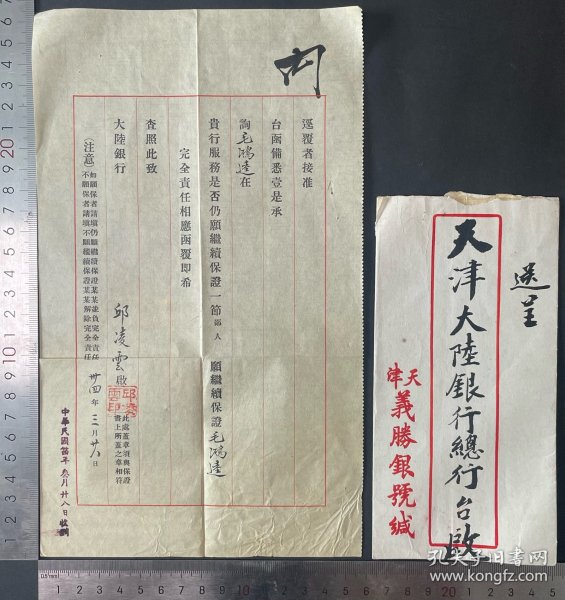 逕覆者接准
台函備悉壹是承
詢毛鴻逵在
貴行服務是否仍願繼續保證一節鄙人 願繼續保證毛鴻逵
完全責任相應函覆即希
查照此致
大陸銀行
邱凌雲啟
此處蓋章須與保證
書上所蓋之章相符
卅四年三月廿八日
(注意)
如願保者請填仍願繼續保證某某並負完全責任
不願保者請填不願繼續保證某某解除完全責任
中華民國 年 叁月廿八日收到
送呈
天津大陸銀行總行台啟
天津義勝銀號緘
孔夫子旧书网
www.kongfz.com